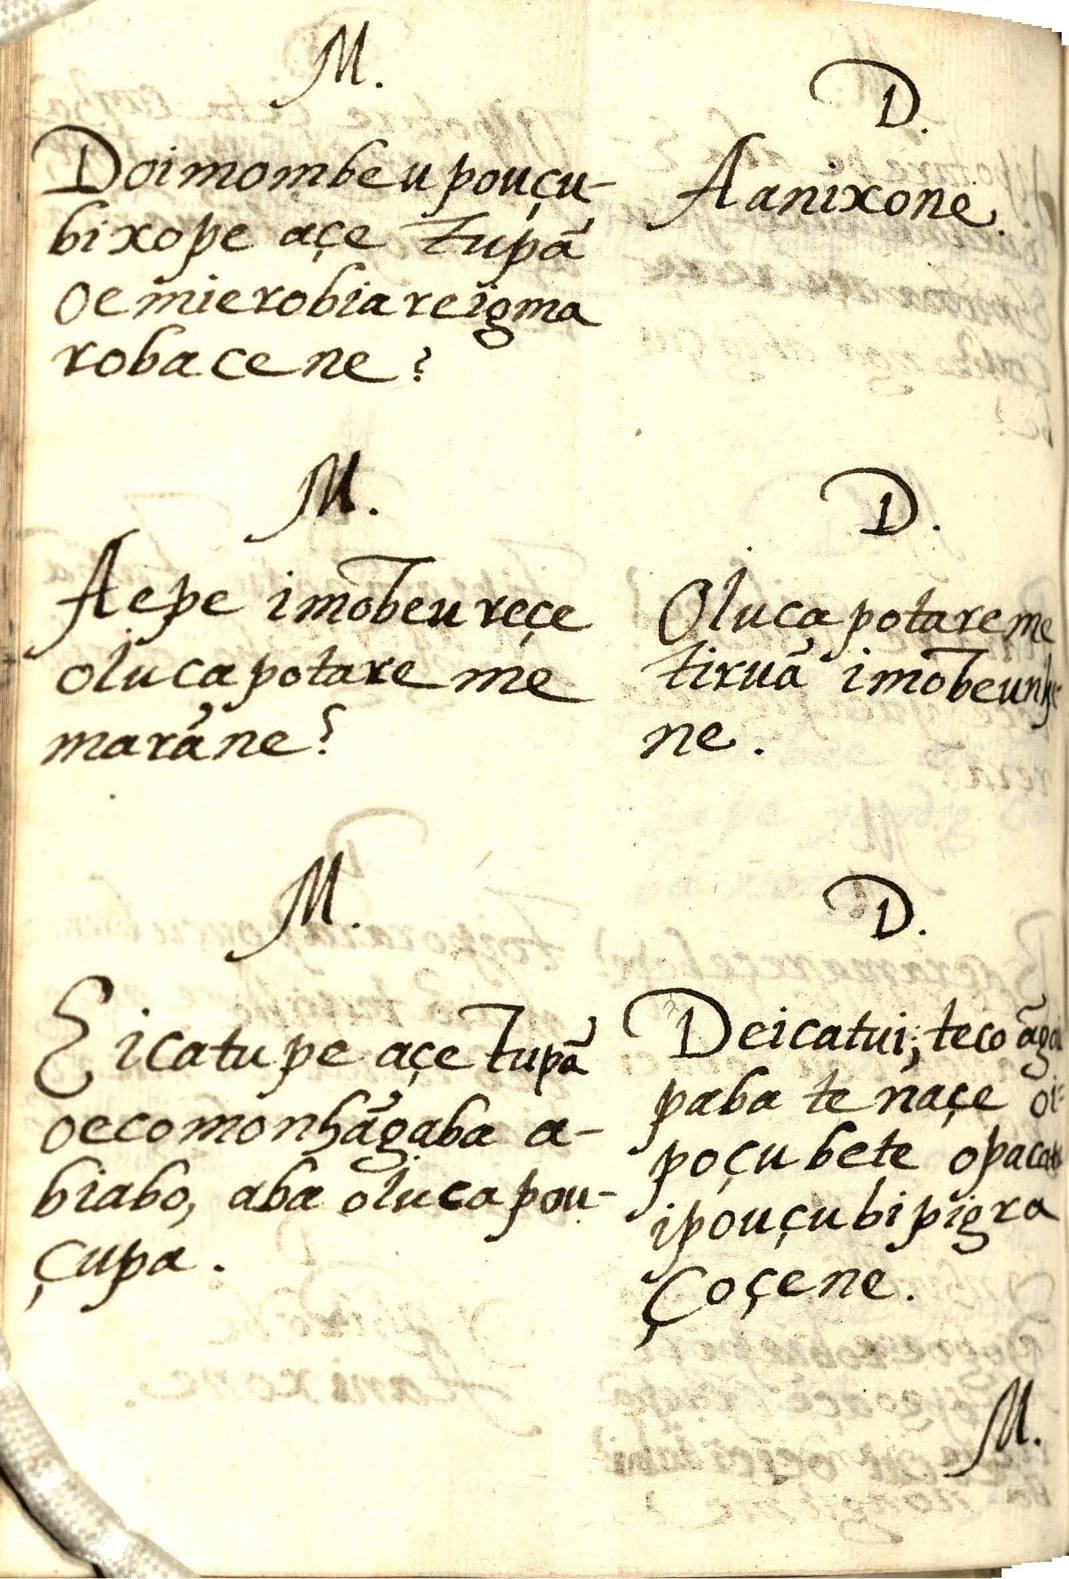 M.
Doimombeu pouçu-
bixope açe Tupã
oemierobiareigma
robacene?
D.
Aanixone.
M.
Aepe imõbeu reçe
oluca potare me
marãne?
D.
Oluca potare me
tiruã imõbeun
ne.
M.
Eicatupe açe Tupã
oecomonhãgaba a-
biabo, aba oluca pou-
çupa.
D.
Deicatui; teco
paba te naçe oi-
poçubete
ipouçubipigra
Çoçene.
M.